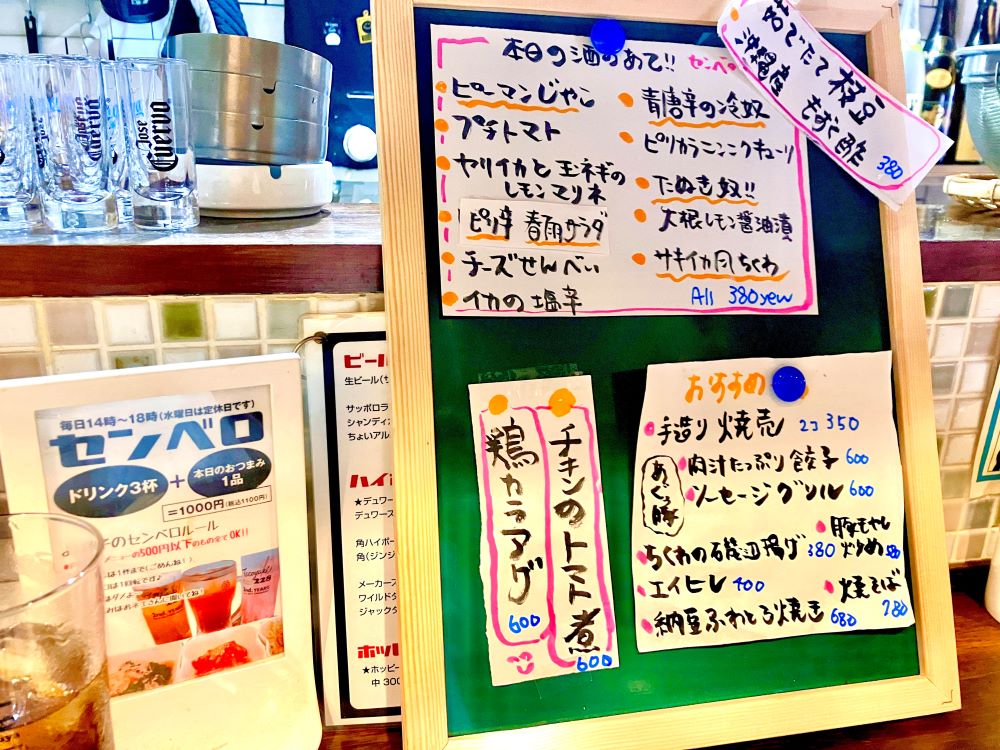 本日の酒のあて!! センベロ
ピーマンじゃこ
プチトマト
ヤリイカと玉ネギの
レモンマリネ
ピリ辛 春雨サラダ
チーズせんべい
イカの塩辛
青唐辛の冷奴
ピリカラニンニクキューリ
たぬき奴!!
大根レモン醤油漬
サキイカ風ちくわ
All 380yen
茹でたて枝豆
沖縄産 もずく酢
380
チキンのトマト煮
600
鶏カラアゲ
600
おすすめ
手造り焼売 2コ 350
肉汁たっぷり餃子 600
ソーセージグリル 600
ちくわの磯辺揚げ 380
豚もやし
炒め
エイヒレ 400
焼そば
780
納豆ふわとろ焼き 680
毎日14時～18時(水曜日は定休日です)
センベロ
ドリンク3杯
+
本日のおつまみ
1品
=1000円(税込1100円)
のセンベロルール
の500円以下のもの全てOK!!
Jose
Cuervo
Jose
Cuervo
ビール
生ビール(サ
サッポロラ
シャンディガ
ちょいアル
ハイ
★デュワー
デュワーズ
角ハイボー
角(ジンジ
メーカーズ
ワイルドタ
ジャックダ
ホッピ
★ホッピー
中 300